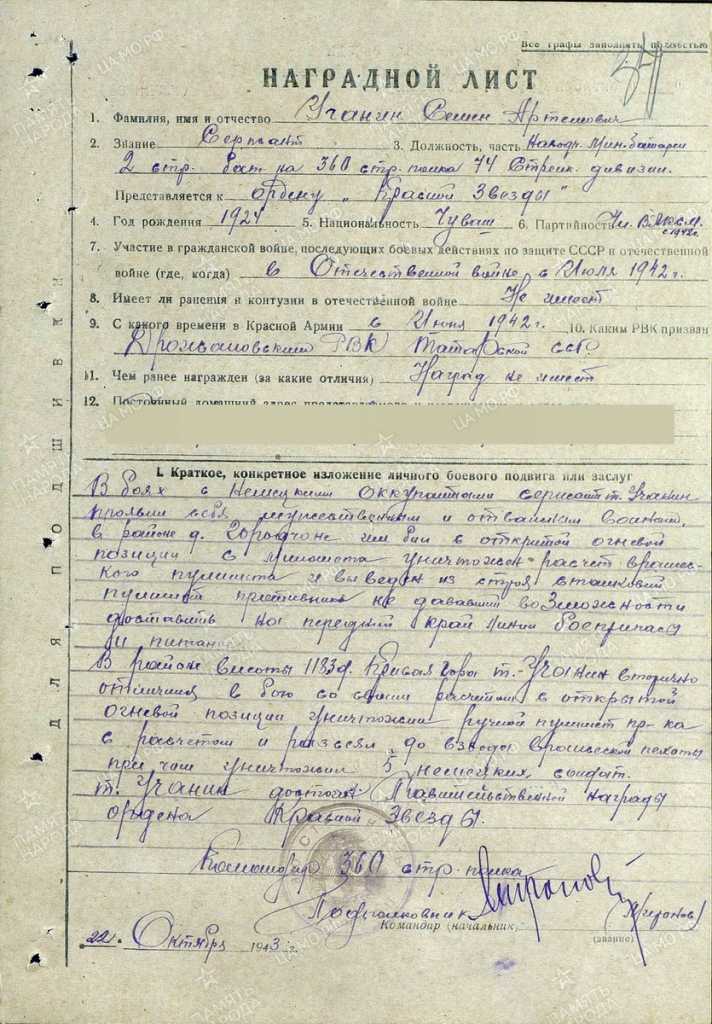 Все графы заполнять полностью
НАГРАДНОЙ ЛИСТ
1. Фамилия, имя и отчество Учанин Семен Артемович
2. Звание Сержант 3. Должность, часть Наводч. мин. батареи
2 стр. бат-на 360 стр. полка 74 Стрелк. дивизии.
Представляется к ордену „Красной Звезды"
4. Год рождения 1924 5. Национальность Чуваш 6. Партийность чл. ВЛКСМ. с 1942г.
7. Участие в гражданской войне, последующих боевых действиях по защите СССР и отечественной
войне (где, когда) в Отечественной войне с Июля 1942 г.
8. Имеет ли ранения и контузии в отечественной войне Не имеет
9. С какого времени в Красной Армии с Июня 1942 г. 10. Каким РВК призван
Дрожжановским РВК Татарской ССР.
11. Чем ранее награжден (за какие отличия) Наград не имеет
12. Постоянный домашний адрес
I. Краткое, конкретное изложение личного боевого подвига или заслуг
В боях с немецкими оккупантами сержант т. Учанин
проявил себя мужественным и отважным воином,
в районе д. им был с открытой огневой
позиции с миномета уничтожен расчет вражес-
кого пулемета и выведен из строя станковый
пулемет противника не дававший возможности
доставить на передний край линии боеприпасы
и питание.
В районе высоты Кривая гора т. Учанин вторично
отличился в бою со своим расчетом с открытой
огневой позиции уничтожил ручной пулемет пр-ка
с расчетом и рассеял до взвода вражеской пехоты
при чем уничтожил 5 немецких солдат.
т. Учанин достоин Правительственной награды
ордена Красной Звезды.
Командир 360 стр. полка
Подполковник (Миронов)
Командир (начальник,
(звание)
22. Октября 1943 г.
ДЛЯ ПОДШИВКИ
ПАМЯТЬ НАРОДА
ЦАМО.РФ